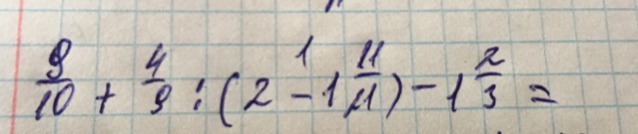 9/10 + 4/9 : (2 - 1 11/11) - 1 2/3 =